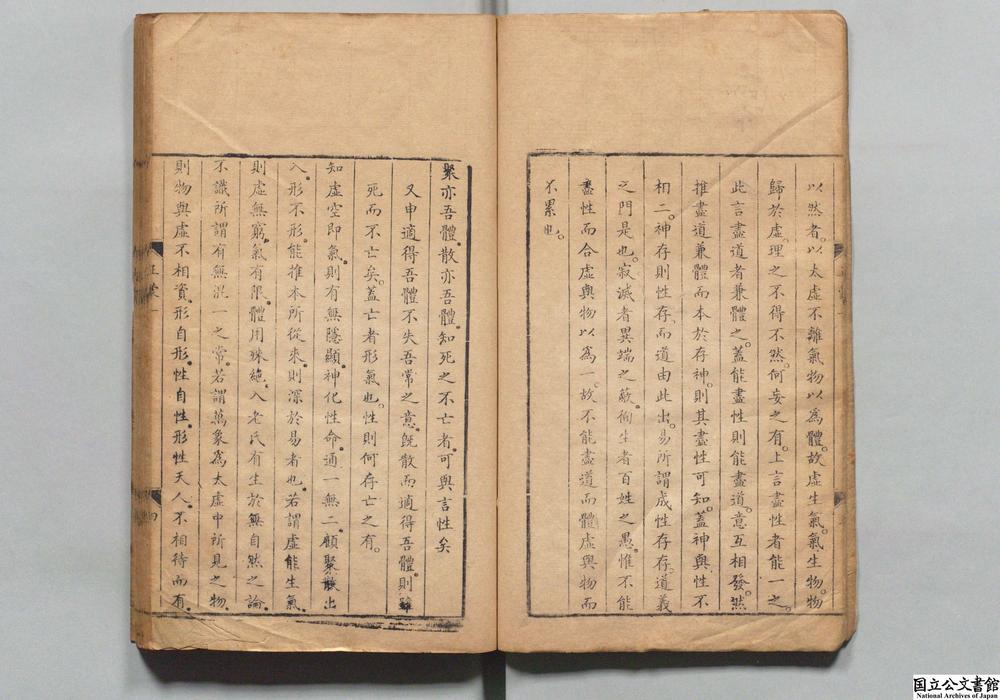 以然者。以太虛不離氣物以為體。故虛生氣。氣生物。物
歸於虛。理之不得不然。何妄之有。上言盡性者能一之。
此言盡道者兼體之。蓋能盡性則能盡道。意互相發。然
推盡道兼體而本於存神。則其盡性可知。蓋神與性不
相二。神存則性存。而道由此出。易所謂成性存存。道義
之門是也。寂滅者異端之蔽。徇生者百姓之愚。惟不能
盡性而合虛與物以為一。故不能盡道而體虛與物而
不累也。
聚亦吾體。散亦吾體。知死之不亡者。可與言性矣
又申適得吾體不失吾常之意。旣散而適得吾體。則雖
死而不亡矣。蓋亡者形氣也。性則何存亡之有。
知虛空即氣。則有無隱顯。神化性命。通一無二。顧聚散出
入形不形。能推本所從來。則深於易者也。若謂虛能生氣。
則虛無窮。氣有限。體用殊絶。入老氏有生於無自然之論。
不識所謂有無混一之常。若謂萬象為太虛中所見之物。
則物與虛不相資。形自形。性自性。形性天人。不相待而有。
正蒙一
四
国立公文書館
National Archives of Japan